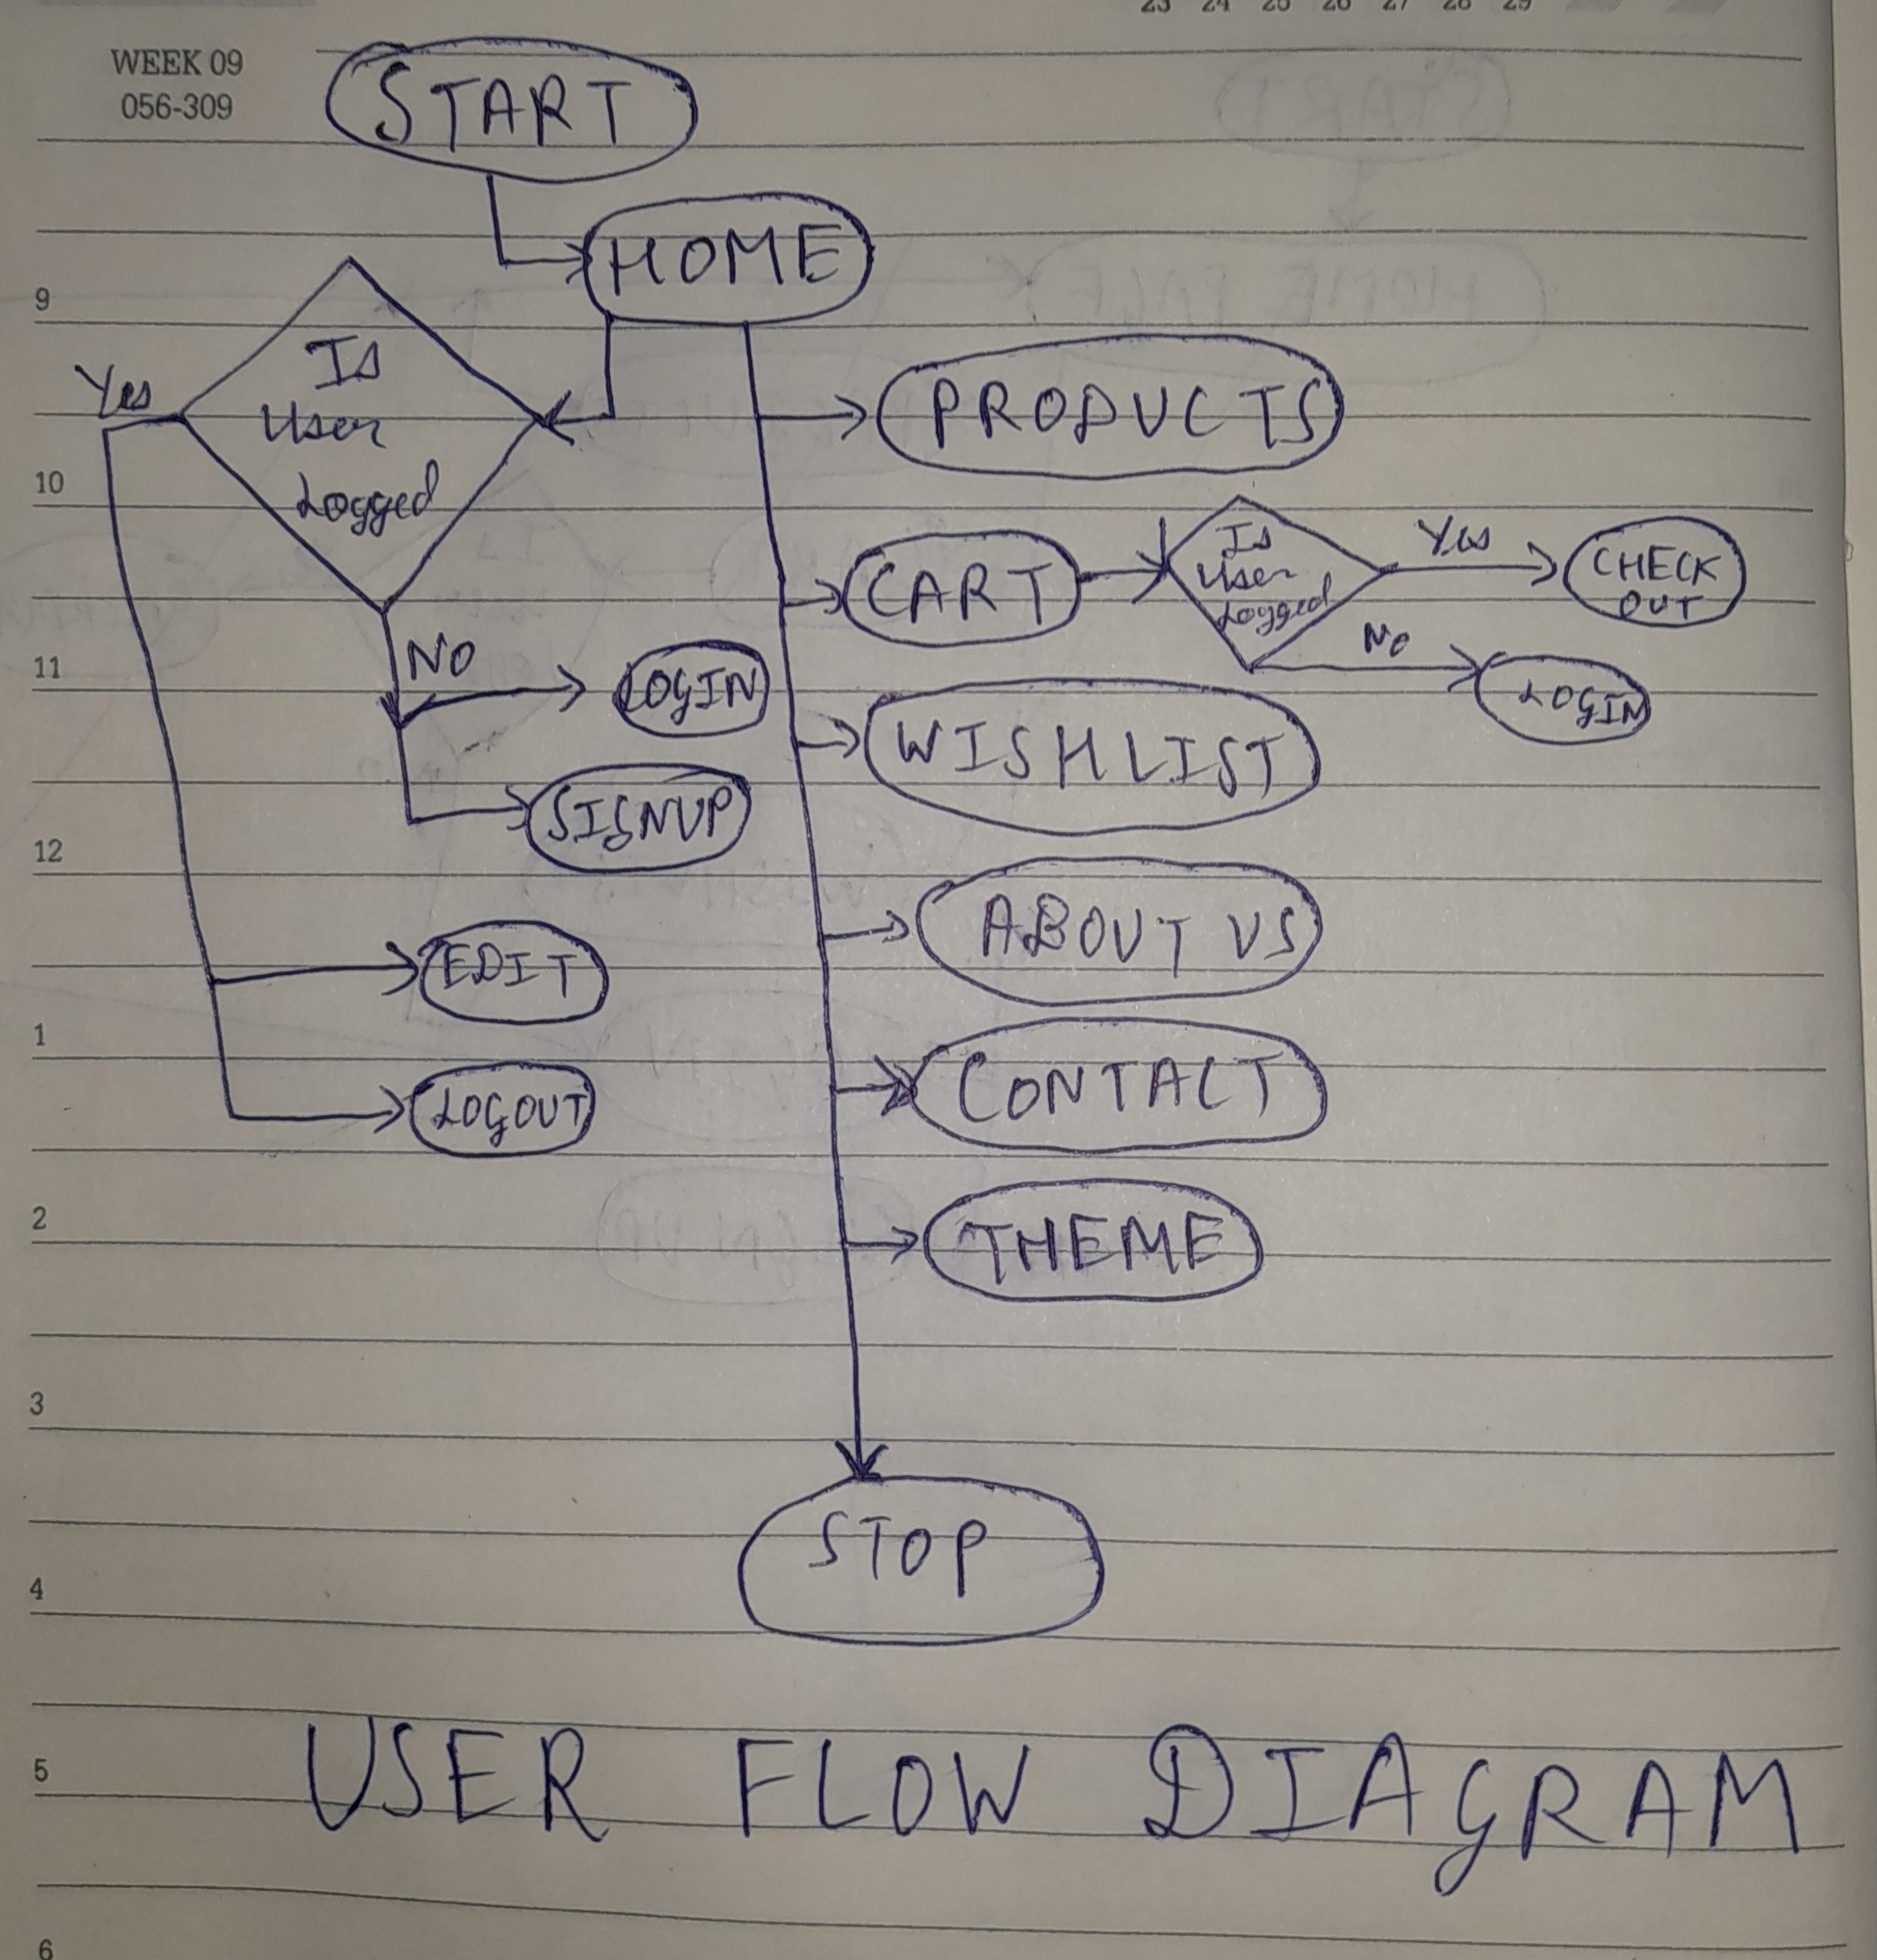 23 24 25 26 27 28 29
WEEK 09
056-309
START
HOME
9
Is
User
Logged
Yes
PRODUCTS
10
CART
Is
User
Logged
Yes
CHECK
OUT
No
LOGIN
NO
11
LOGIN
WISHLIST
SIGNUP
12
ABOUT US
EDIT
1
CONTACT
LOGOUT
2
THEME
3
STOP
4
5
USER FLOW DIAGRAM
6